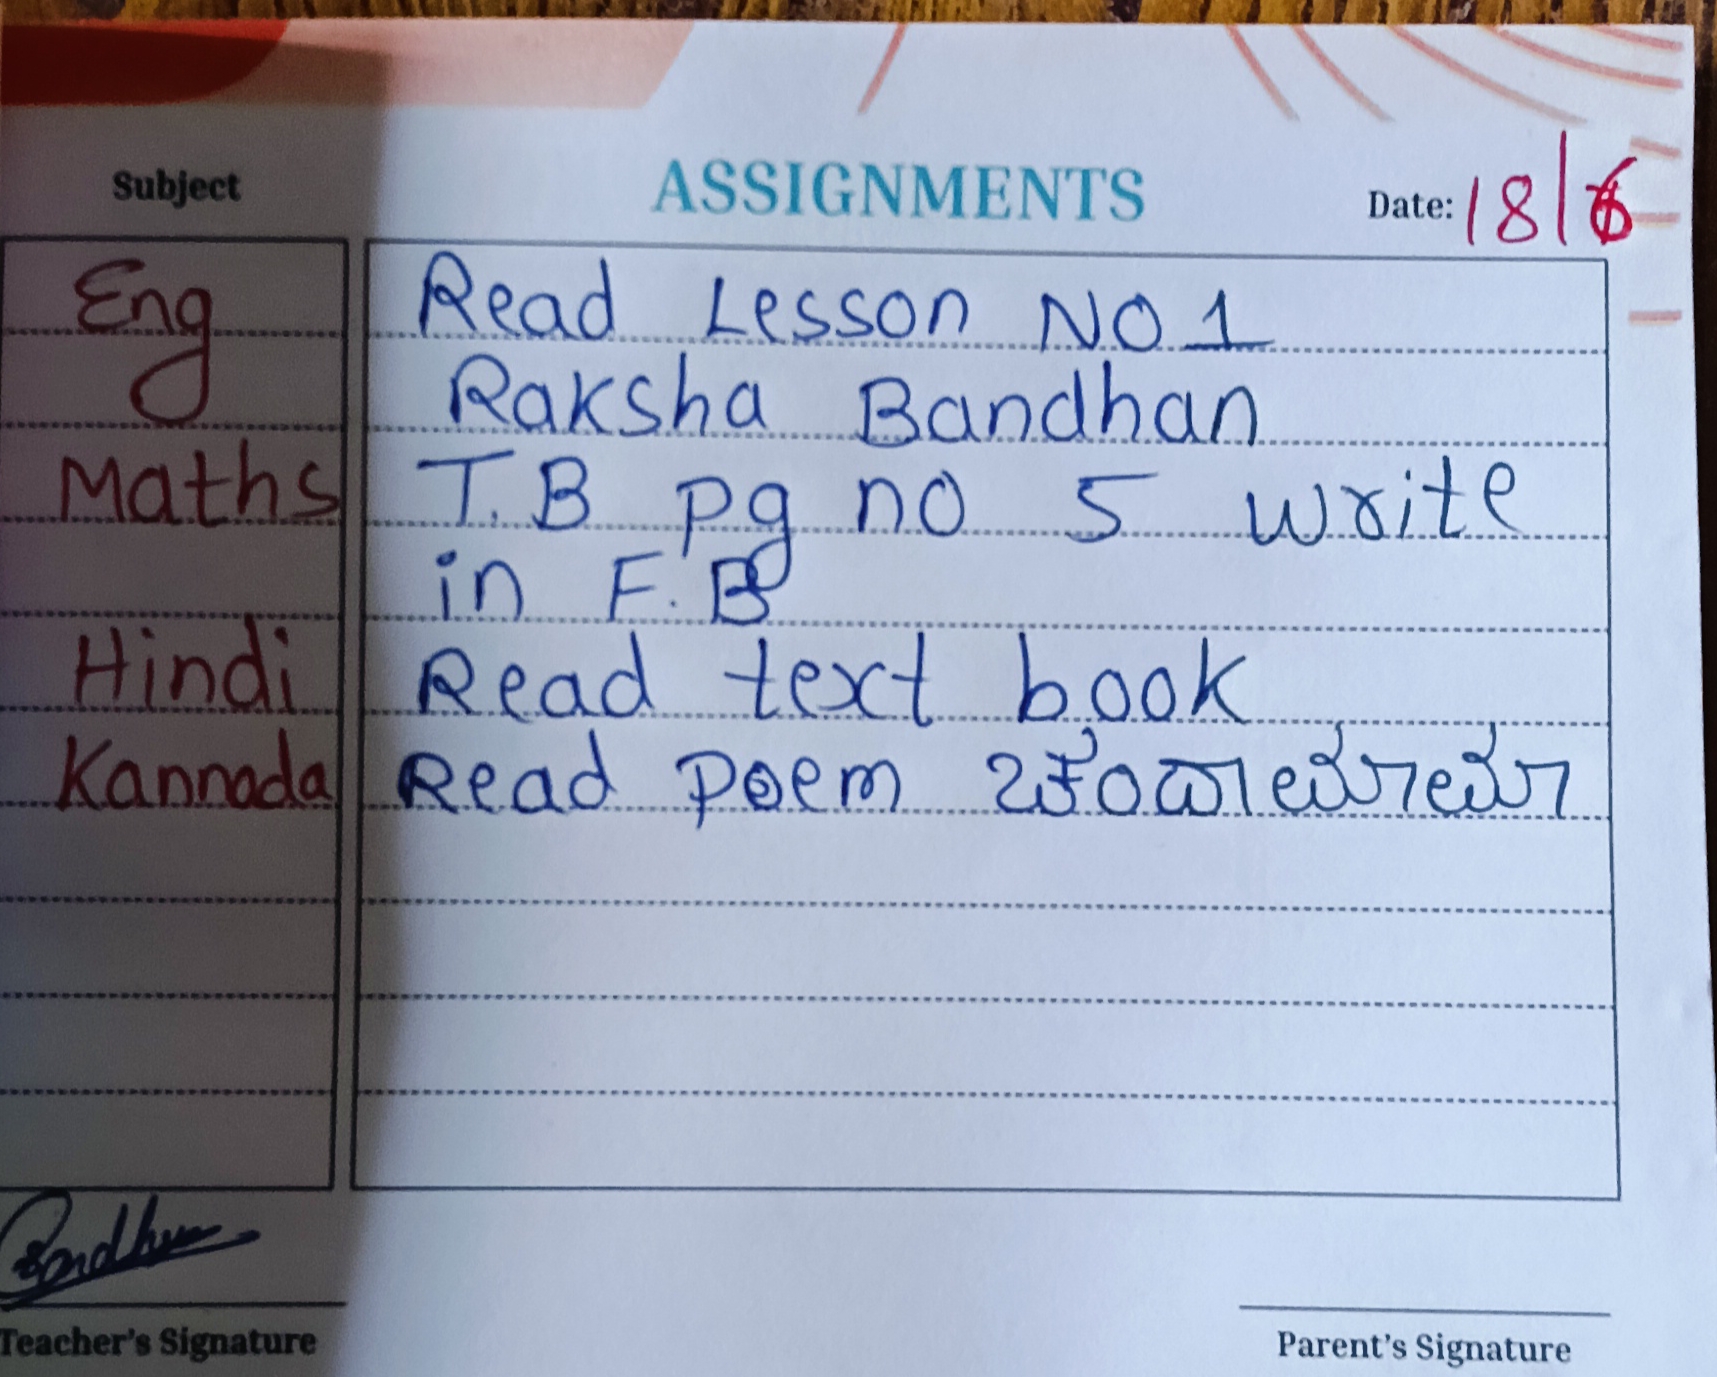 Subject ASSIGNMENTS Date: 18/6
Eng Read Lesson NO 1
Raksha Bandhan
Maths T.B pg no 5 write
in F.B
Hindi Read text book
Kannada Read poem ಚಂದಾಮಾಮಾ
Teacher's Signature Parent's Signature